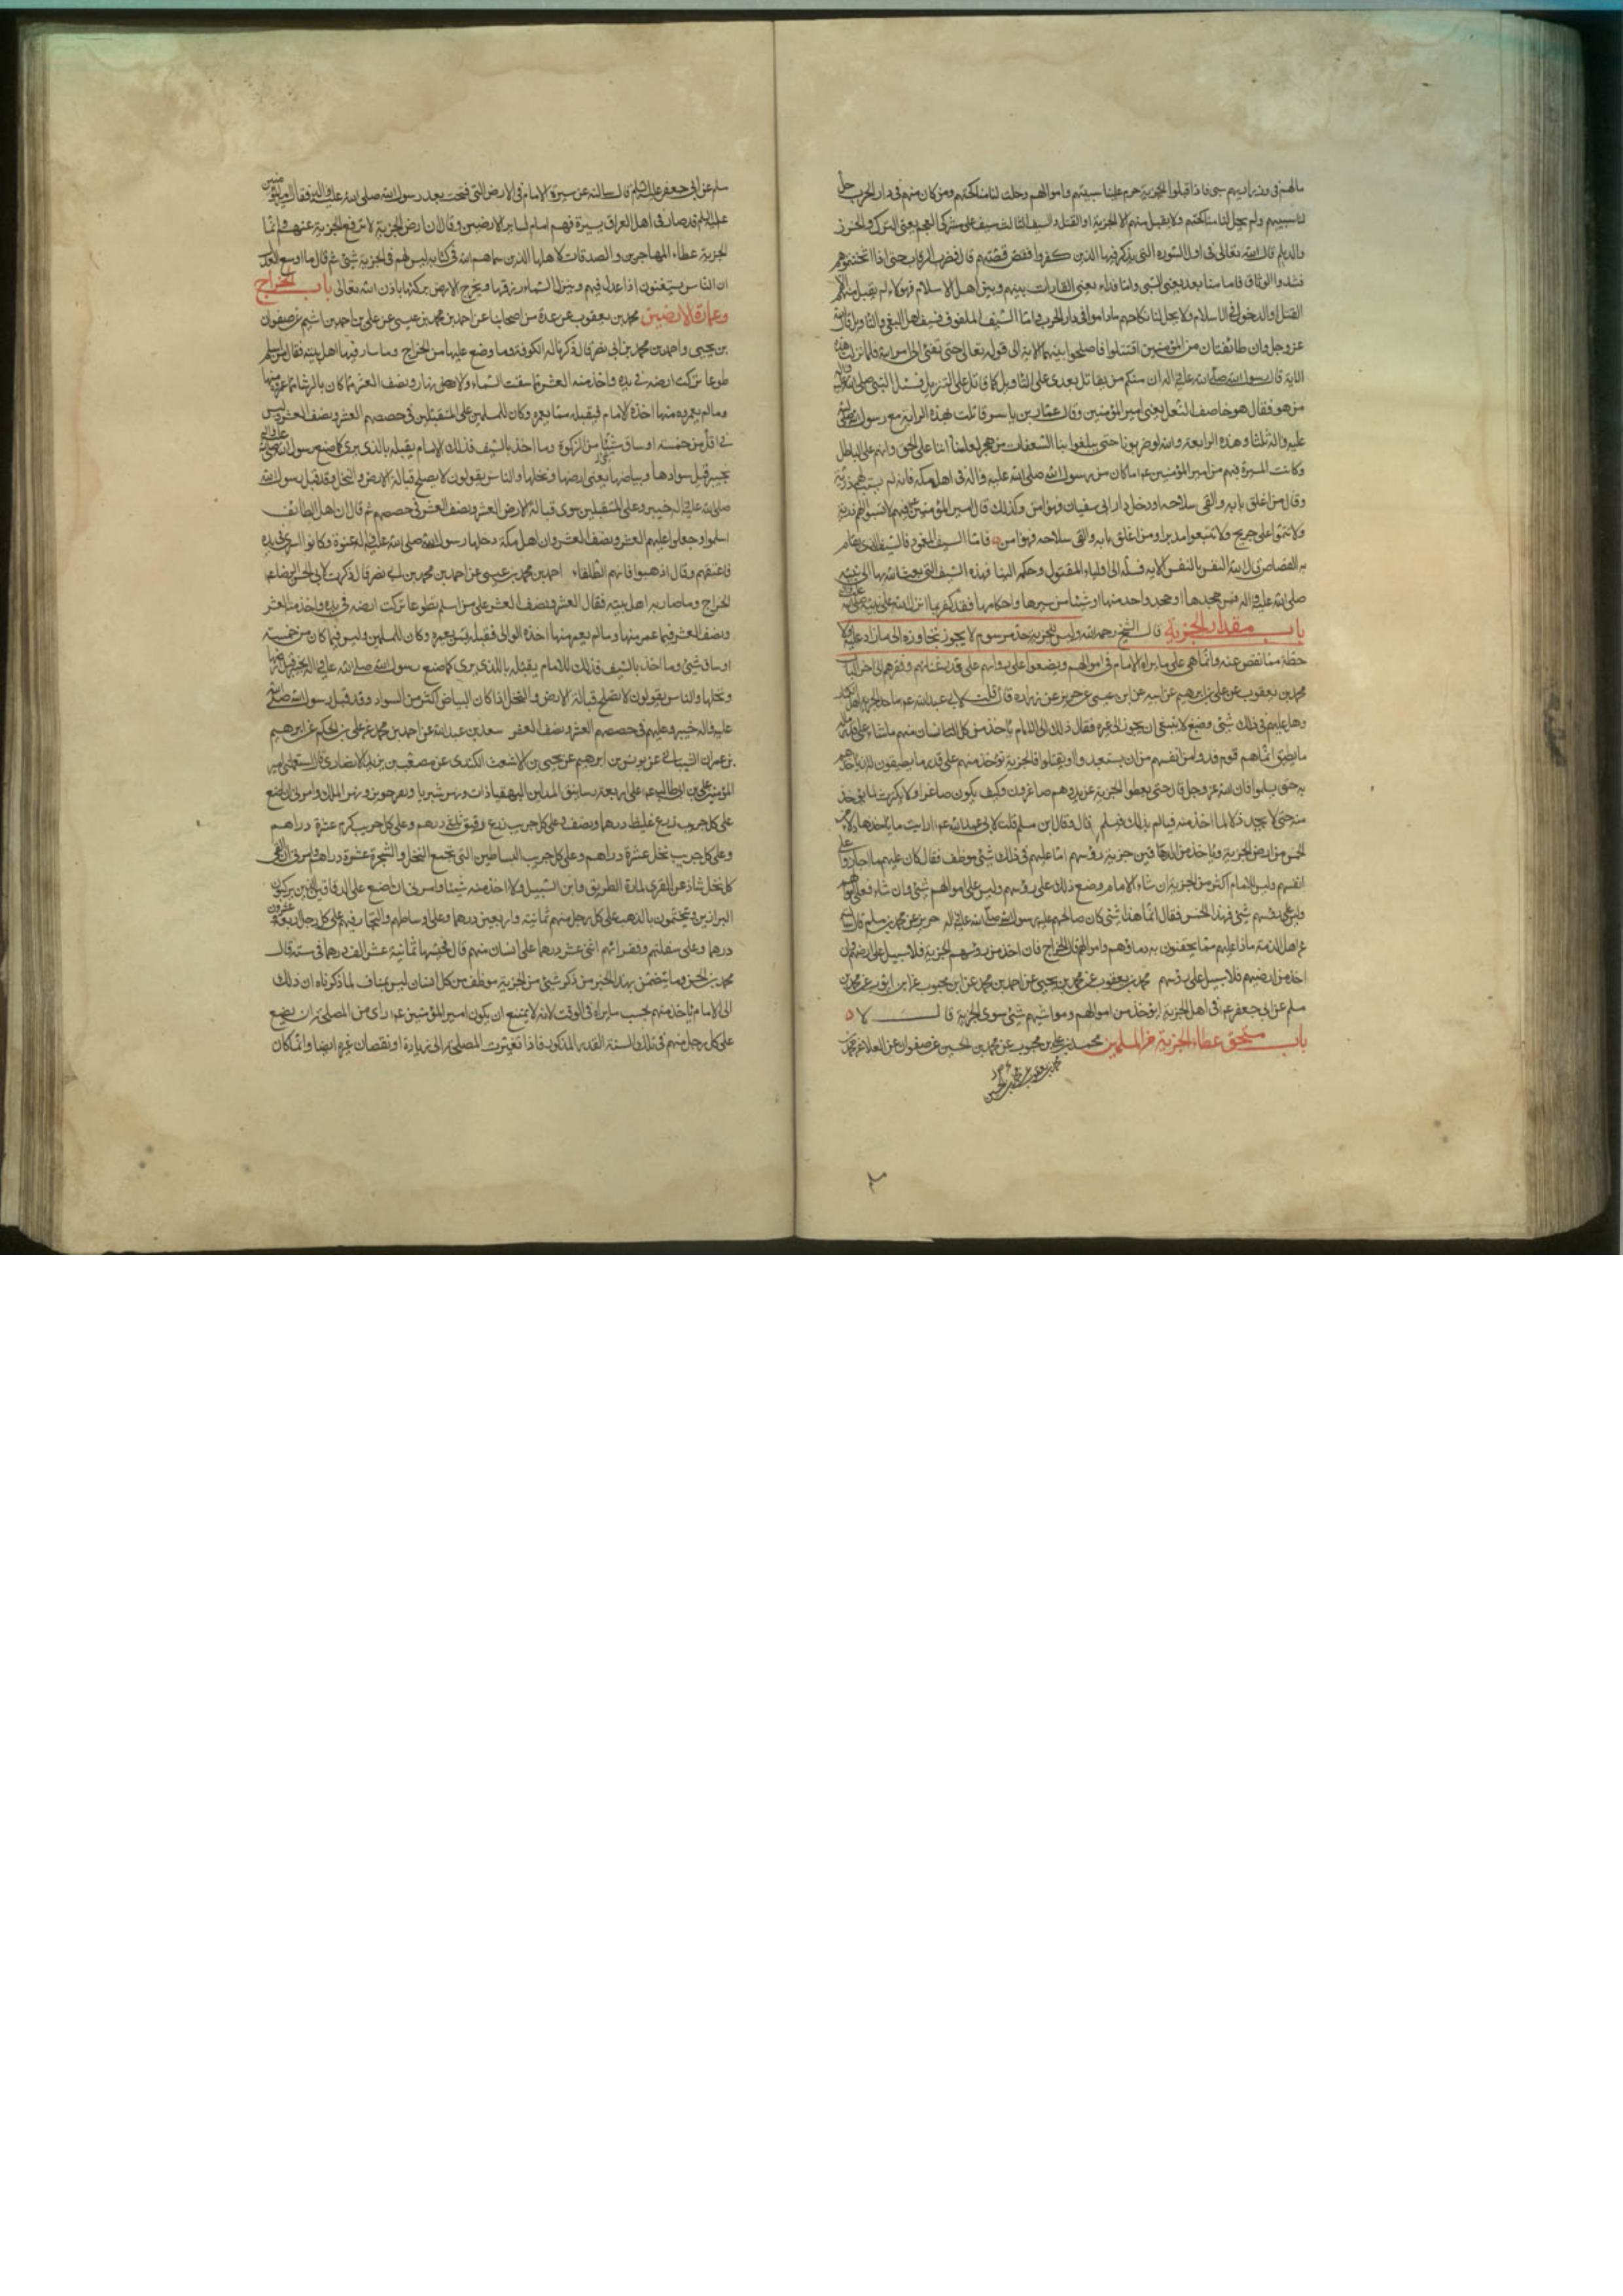 مالهم فئ وذراريهم سبى فاذا قبلوا الجزية حرم علينا سبيهم واموالهم وحلت لنا مناكحتهم ومن كان منهم فى دار الحرب حل
لنا سبيهم ولم يحل لنا مناكحتهم ولا يقبل منهم الا الجزية او القتل والسيف الثالث سيف على مشركى العجم يعنى الترك والخزر
والديلم قال الله تعالى فى اول السورة التى يذكر فيها الذين كفروا فقص قصتهم قال فضرب الرقاب حتى اذا اثخنتموهم
فشدوا الوثاق فاما منا بعد يعنى السبى واما فداء يعنى المفادات بينهم وبين اهل الاسلام فهؤلاء لم يقبل منهم الا
القتل او الدخول فى الاسلام ولا يحل لنا نكاحهم ماداموا فى دار الحرب واما السيف الملفوف فسيف اهل البغى والتاويل قال الله
عز وجل وان طائفتان من المؤمنين اقتتلوا فاصلحوا بينهما الاية الى قوله تعالى حتى تفئ الى امر الله فلما نزلت هذه
الاية قال رسول الله صلى الله عليه واله ان منكم من يقاتل بعدى على التاويل كما قاتل على التنزيل فسئل النبى صلى الله عليه واله
من هو فقال هو خاصف النعل يعنى امير المؤمنين وقال عمار بن ياسر قاتلت بهذه الراية مع رسول الله صلى الله
عليه واله ثلثا وهذه الرابعة والله لو ضربونا حتى يبلغوا بنا السعفات من هجر لعلمنا اننا على الحق وانهم على الباطل
وكانت السيرة فيهم من امير المؤمنين ع ما كان من رسول الله صلى الله عليه واله فى اهل مكة فانه لم يسب لهم ذرية
وقال من اغلق بابه والقى سلاحه او دخل دار ابى سفيان فهو امن وكذلك قال امير المؤمنين فيهم لا تسبوا لهم ذرية
ولا تتموا على جريح ولا تتبعوا مدبرا ومن اغلق بابه والقى سلاحه فهو امن فاما السيف المغمود فالسيف الذى يقام
به القصاص قال الله النفس بالنفس الاية فسله الى اولياء المقتول وحكمه الينا فهذه السيف التى بعث الله بها الى نبيه
صلى الله عليه واله فمن جحدها او جحد واحد منها او شيئا من سيرها واحكامها فقد كفر بما انزل الله على نبيه صلى الله عليه واله
باب مقدار الجزية قال الشيخ رحمه الله وليس للجزية حد مرسوم لا يجوز تجاوزه الى ما زاد عليه ولا
حطه عما نقص عنه وانما هى على ما يراه الامام فى اموالهم ويضعوا على رقابهم على قدر غناهم وفقرهم الى اخر الباب
محمد بن يعقوب عن على بن ابرهيم عن ابيه عن ابن عيسى عن حريز عن زرارة قال قلت لابى عبدالله ع ما حد الجزية على اهل الكتاب
وهل عليهم فى ذلك شئ موضع لا ينبغى ان يجوز الى غيره فقال ذلك الى الامام ياخذ من كل انسان منهم ما شاء على قدر ماله
ما يطيق انما هم قوم فدوا من انفسهم من ان يستعبدوا او يقتلوا فالجزية تؤخذ منهم على قدر ما يطيقون له ان ياخذهم
به حتى يسلموا فان الله عز وجل قال حتى يعطوا الجزية عن يد وهم صاغرون وكيف يكون صاغرا ولا يكترث لما يؤخذ
منه حتى لا يجد ذلا لما اخذ منه فيالم بذلك فيسلم قال وقال ابن مسلم قلت لابى عبدالله ع ارايت ما ياخذ هؤلاء من
الخمس من ارض الجزية وياخذ من الدهاقين جزية رؤسهم اما عليهم فى ذلك شئ موظف فقال كان عليهم ما اجازوا على
انفسهم وليس للامام اكثر من الجزية ان شاء الامام وضع ذلك على رؤسهم وليس على اموالهم شئ وان شاء فعلى اموالهم
وليس على رؤسهم شئ فهذا الخمس فقال انما هذا شئ كان صالحهم عليه رسول الله صلى الله عليه واله حريز عن محمد بن مسلم قال سالته
عن اهل الذمة ماذا عليهم مما يحقنون به دماؤهم واموالهم قال الخراج فان اخذ من رؤسهم الجزية فلا سبيل على ارضهم وان
اخذ من ارضيهم فلا سبيل على رؤسهم محمد بن يعقوب عن محمد بن يحيى عن احمد بن محمد عن ابن محبوب عن ابى ايوب عن محمد بن
مسلم عن ابى جعفر ع فى اهل الجزية ايؤخذ من اموالهم ومواشيهم شئ سوى الجزية قال لا
باب مستحق عطاء الجزية من المسلمين محمد بن على بن محبوب عن محمد بن الحسين عن صفوان عن العلا عن محمد
سلم عن ابى جعفر عليه السلم قال سالته عن سيرة الامام فى الارض التى فتحت بعد رسول الله صلى الله عليه واله فقال ان امير المؤمنين
عليه السلم قد صار فى اهل العراق بسيرة فهم امام لساير الارضين وقال ان ارض الجزية لا ترفع الجزية عنهم وانما
الجزية عطاء المهاجرين والصدقات لاهلها الذين سماهم الله فى كتابه ليس لهم فى الجزية شئ ثم قال ما اوسع العدل
ان الناس يستغنون اذا عدل فيهم وتنزل السماء رزقها وتخرج الارض بركتها باذن الله تعالى باب الخراج
وعمارة الارضين محمد بن يعقوب عن عدة من اصحابنا عن احمد بن محمد بن عيسى عن على بن احمد بن اشيم عن صفوان
بن يحيى واحمد بن محمد بن ابى نصر قال ذكرنا له الكوفة وما وضع عليها من الخراج وما سار فيها اهل بيته فقال من اسلم
طوعا تركت ارضه فى يده واخذ منه العشر مما سقت السماء والانهار ونصف العشر مما كان بالرشا مما عمروه منها
وما لم يعمروه منها اخذه الامام فيقبله ممن يعمره وكان للمسلمين على المتقبلين فى حصصهم العشر ونصف العشر وليس
فى اقل من خمسة اوساق شيئا من الزكوة وما اخذ بالسيف فذلك للامام يقبله بالذى يرى كما صنع رسول الله صلى الله عليه واله
بخيبر قبل سوادها وبياضها يعنى ارضها ونخلها والناس يقولون لا يصلح قبالة الارض والنخل وقد قبل رسول الله
صلى الله عليه واله خيبر وعلى المتقبلين سوى قبالة الارض العشر ونصف العشر فى حصصهم ثم قال ان اهل الطائف
اسلموا وجعلوا عليهم العشر ونصف العشر وان اهل مكة دخلها رسول الله صلى الله عليه واله عنوة وكانوا اسرى فى يده
فاعتقهم وقال اذهبوا فانتم الطلقاء احمد بن محمد بن عيسى عن احمد بن محمد بن ابى نصر قال ذكرت لابى الحسن الرضا ع
الخراج وما صار به اهل بيته فقال العشر ونصف العشر على من اسلم تطوعا تركت ارضه فى يده واخذ منه العشر
ونصف العشر فيما عمر منها وما لم يعمر منها اخذه الوالى فقبله ممن يعمره وكان للمسلمين وليس فيما كان من خمسة
اوساق شئ وما اخذ بالسيف فذلك للامام يقبله بالذى يرى كما صنع رسول الله صلى الله عليه واله بخيبر قبل ارضها
ونخلها والناس يقولون لا تصلح قبالة الارض والنخل اذا كان البياض اكثر من السواد وقد قبل رسول الله صلى الله
عليه واله خيبر وعليهم فى حصصهم العشر ونصف العشر سعد بن عبد الله عن احمد بن محمد عن على بن الحكم عن ابرهيم
بن عمران الشيبانى عن يونس بن ابرهيم عن يحيى بن الاشعث الكندى عن مصعب بن يزيد الانصارى قال استعملنى امير
المؤمنين على بن ابى طالب ع على اربعة رساتيق المداين البهقياذات ونهر شير يا ونهر جوير ونهر الملك وامرنى ان اضع
على كل جريب زرع غليظ درهما ونصف وعلى كل جريب زرع رقيق ثلثى درهم وعلى كل جريب كرم عشرة دراهم
وعلى كل جريب نخل عشرة دراهم وعلى كل جريب البساطين التى تجمع النخل والشجرة عشرة دراهم وامرنى ان القى
كل نخل شاذ عن القرى لمارة الطريق وابن السبيل ولا اخذ منه شيئا وامرنى ان اضع على الدهاقين الذين يركبون
البراذين ويتختمون بالذهب على كل رجل منهم ثمانية واربعين درهما وعلى اوساطهم والتجار فيهم على كل رجل اربعة وعشرون
درهما وعلى سفلتهم وفقرائهم اثنى عشر درهما على انسان منهم قال فجبيتها ثمانية عشر الف درهما فى سنة قال
محمد بن الحسن وما يتضمن بهذا الخبر من ذكر شئ من الجزية موظف من كل انسان ليس بمناف لما ذكرناه ان ذلك
الى الامام ياخذ منهم بحسب ما يراه فى الوقت لانه لا يمتنع ان يكون امير المؤمنين ع راى من المصلحة ان يضع
على كل رجل منهم فى تلك السنة القدر المذكور فاذا تغيرت المصلحة الى زيادة او نقصان غيره ايضا وانما كان